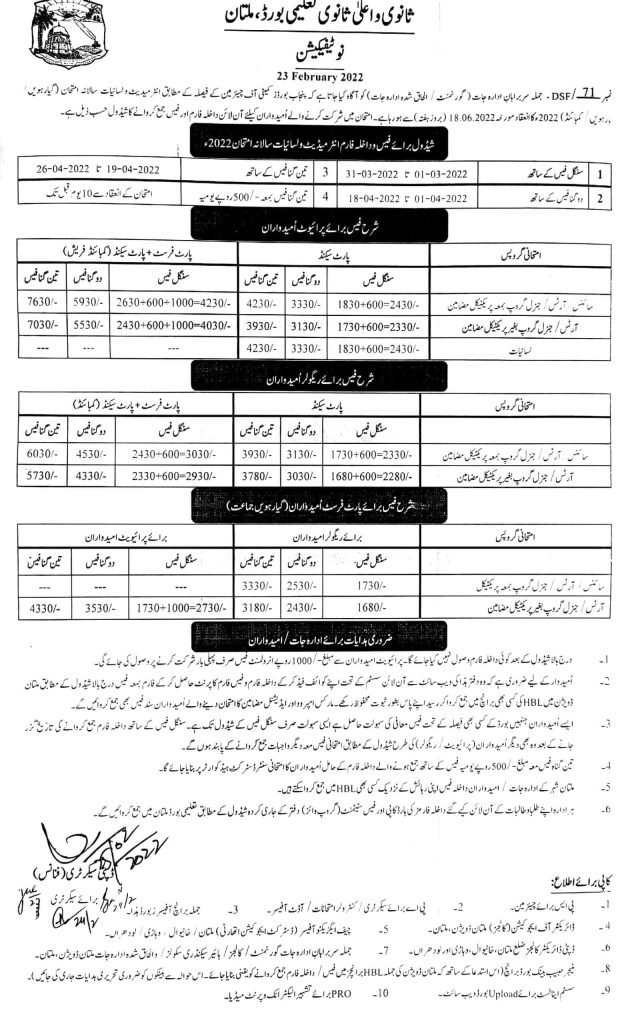 ثانوی و اعلیٰ ثانوی تعلیمی بورڈ، ملتان
نوٹیفکیشن
23 February 2022
نمبر 71/DSF - جملہ سربراہان ادارہ جات (گورنمنٹ / الحاق شدہ ادارہ جات) کو آگاہ کیا جاتا ہے کہ پنجاب بورڈز کمیٹی آف چیئرمین کے فیصلہ کے مطابق انٹرمیڈیٹ و لسانیات سالانہ امتحان (گیارہویں/
بارہویں / کمبائنڈ) 2022ء کا انعقاد مورخہ 18.06.2022 (بروز ہفتہ) سے ہو رہا ہے۔ امتحان میں شرکت کرنے والے اُمیدواران کیلئے آن لائن داخلہ فارم اور فیس جمع کروانے کا شیڈول حسب ذیل ہے۔
شیڈول برائے فیس و داخلہ فارم انٹرمیڈیٹ و لسانیات سالانہ امتحان 2022ء
1 سنگل فیس کے ساتھ 01-03-2022 تا 31-03-2022 3 تین گنا فیس کے ساتھ 19-04-2022 تا 26-04-2022
2 دو گنا فیس کے ساتھ 01-04-2022 تا 18-04-2022 4 تین گنا فیس بمعہ -/500 روپے یومیہ امتحان کے انعقاد سے 10 یوم قبل تک
شرح فیس برائے پرائیویٹ اُمیدواران
امتحانی گروپس پارٹ سیکنڈ پارٹ فرسٹ + پارٹ سیکنڈ (کمبائنڈ فریش)
سنگل فیس دو گنا فیس تین گنا فیس سنگل فیس دو گنا فیس تین گنا فیس
سائنس / آرٹس / جنرل گروپ بمعہ پریکٹیکل مضامین 1830+600=2430/- 3330/- 4230/- 2630+600+1000=4230/- 5930/- 7630/-
آرٹس / جنرل گروپ بغیر پریکٹیکل مضامین 1730+600=2330/- 3130/- 3930/- 2430+600+1000=4030/- 5530/- 7030/-
لسانیات 1830+600=2430/- 3330/- 4230/- --- --- ---
شرح فیس برائے ریگولر اُمیدواران
امتحانی گروپس پارٹ سیکنڈ پارٹ فرسٹ + پارٹ سیکنڈ (کمبائنڈ)
سنگل فیس دو گنا فیس تین گنا فیس سنگل فیس دو گنا فیس تین گنا فیس
سائنس / آرٹس / جنرل گروپ بمعہ پریکٹیکل مضامین 1730+600=2330/- 3130/- 3930/- 2430+600=3030/- 4530/- 6030/-
آرٹس / جنرل گروپ بغیر پریکٹیکل مضامین 1680+600=2280/- 3030/- 3780/- 2330+600=2930/- 4330/- 5730/-
شرح فیس برائے پارٹ فرسٹ اُمیدواران (گیارہویں جماعت)
امتحانی گروپس برائے ریگولر امیدواران برائے پرائیویٹ امیدواران
سنگل فیس دو گنا فیس تین گنا فیس سنگل فیس دو گنا فیس تین گنا فیس
سائنس / آرٹس / جنرل گروپ بمعہ پریکٹیکل 1730/- 2530/- 3330/- --- --- ---
آرٹس / جنرل گروپ بغیر پریکٹیکل مضامین 1680/- 2430/- 3180/- 1730+1000=2730/- 3530/- 4330/-
ضروری ہدایات برائے ادارہ جات / امیدواران
1۔ درج بالا شیڈول کے بعد کوئی داخلہ فارم وصول نہیں کیا جائے گا۔ پرائیویٹ امیدواران سے مبلغ -/1000 روپے انرولمنٹ فیس صرف پہلی بار شرکت کرنے پر وصول کی جائے گی۔
2۔ اُمیدوار کے لیے ضروری ہے کہ وہ دفتر ہذا کی ویب سائٹ سے آن لائن سسٹم کے تحت اپنے کوائف فیڈ کر کے داخلہ فارم و فیس فارم کا پرنٹ حاصل کر کے فارم بمعہ فیس درج بالا شیڈول کے مطابق ملتان
ڈویژن میں HBL کی کسی بھی برانچ میں جمع کروا کر رسید اپنے پاس بطور ثبوت محفوظ رکھے۔ مارکس امپروو اور ایڈیشنل مضامین کا امتحان دینے والے امیدواران سند فیس بھی جمع کروائیں گے۔
3۔ ایسے اُمیدواران جنہیں بورڈ کے کسی بھی فیصلہ کے تحت فیس معافی کی سہولت حاصل ہے ایسی سہولت صرف سنگل فیس کے شیڈول تک ہے۔ سنگل فیس کے ساتھ داخلہ فارم جمع کروانے کی تاریخ گزر
جانے کے بعد وہ بھی دیگر اُمیدواران (پرائیویٹ / ریگولر) کی طرح شیڈول کے مطابق امتحانی فیس معہ دیگر واجبات جمع کروانے کے پابند ہوں گے۔
4۔ تین گنا فیس معہ مبلغ -/500 روپے یومیہ فیس کے ساتھ جمع ہونے والے داخلہ فارم کے حامل اُمیدواران کا امتحانی سنٹر ڈسٹرکٹ ہیڈ کوارٹر پر بنایا جائے گا۔
5۔ ملتان شہر کے ادارہ جات / امیدواران داخلہ فیس اپنی رہائش کے نزدیک کسی بھی HBL میں جمع کروا سکتے ہیں۔
6۔ ہر ادارہ اپنے طلباء و طالبات کے آن لائن کیے گئے داخلہ فارمز کی ہارڈ کاپی اور فیس سٹیٹمنٹ (گروپ وائز) دفتر کے جاری کردہ شیڈول کے مطابق تعلیمی بورڈ ملتان میں جمع کروائیں گے۔
2022
ڈپٹی سیکرٹری (فنانس)
کاپی برائے اطلاع:
1۔ پی ایس برائے چیئرمین۔ 2۔ پی اے برائے سیکرٹری / کنٹرولر امتحانات / آڈٹ آفیسر۔ 3۔ جملہ برانچ آفیسرز بورڈ ہذا۔
4۔ ڈائریکٹر آف ایجوکیشن (کالجز) ملتان ڈویژن، ملتان۔ 5۔ چیف ایگزیکٹو آفیسر (ڈسٹرکٹ ایجوکیشن اتھارٹی) ملتان / خانیوال / وہاڑی / لودھراں۔
6۔ ڈپٹی ڈائریکٹر کالجز ضلع ملتان، خانیوال، وہاڑی اور لودھراں۔ 7۔ جملہ سربراہان ادارہ جات گورنمنٹ / کالجز / ہائیر سیکنڈری سکولز / والحاق شدہ ادارہ جات ملتان ڈویژن، ملتان۔
8۔ منیجر حبیب بینک بورڈ برانچ (اس استدعا کے ساتھ کہ ملتان ڈویژن کی جملہ HBL برانچز میں فیس / داخلہ فارم جمع کروانے کو یقینی بنایا جائے۔ اس حوالہ سے بینکوں کو ضروری تحریری ہدایات جاری کی جائیں)۔
9۔ سسٹم اینالسٹ برائے Upload بورڈ ویب سائٹ۔ 10۔ PRO برائے تشہیر الیکٹرانک و پرنٹ میڈیا۔